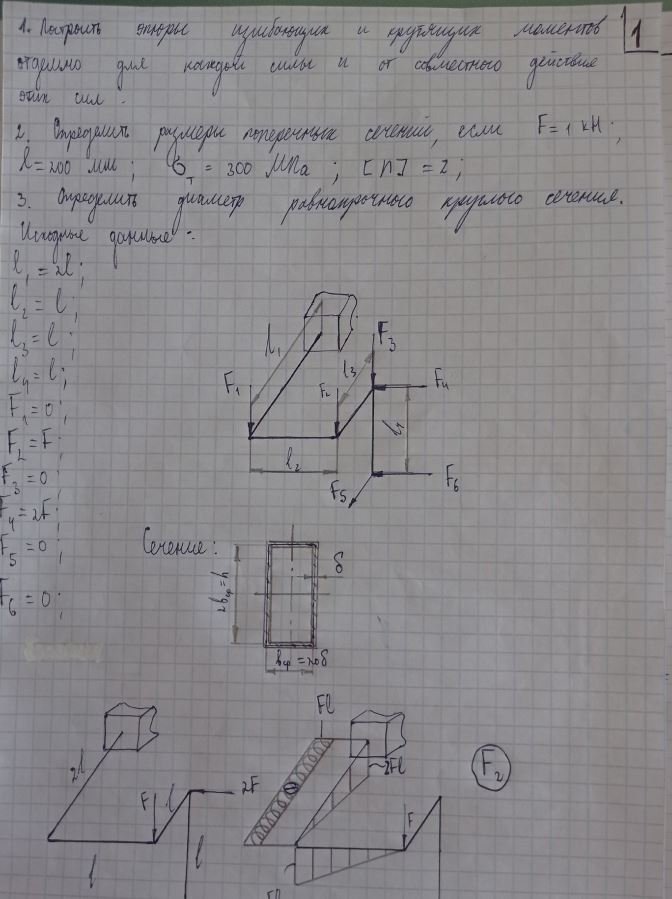 1. Построить эпюры изгибающих и крутящих моментов
отдельно для каждой силы и от совместного действия
этих сил.
1
2. Определить размеры поперечных сечений, если F = 1 кН;
l = 200 мм; σт = 300 МПа; [n] = 2;
3. Определить диаметр равнопрочного круглого сечения.
Исходные данные:
l1 = 2l;
l2 = l;
l3 = l;
l4 = l;
F1 = 0;
F2 = F;
F3 = 0;
F4 = 2F;
F5 = 0;
F6 = 0;
l1
F3
l3
F1
F2
F4
l4
l2
F5
F6
Сечение:
δ
2bср = h
bср = 20δ
Fl
2l
F
l
2F
l
l
2Fl
F2
F
Fl